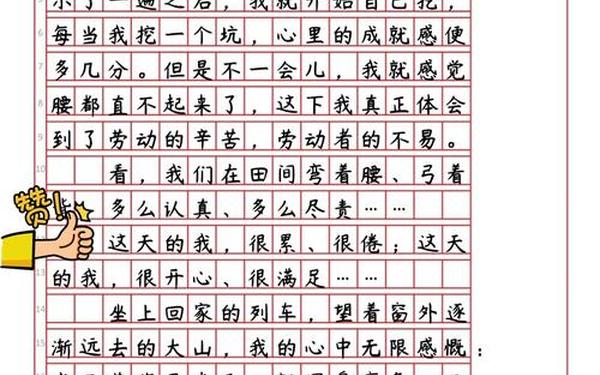 示了一遍之后，我就开始自己挖，
每当我挖一个坑，心里的成就感便
多几分。但是不一会儿，我就感觉
腰都直不起来了，这下我真正体会
到了劳动的辛苦，劳动者的不易。
看，我们在田间弯着腰、弓着
多么认真、多么尽责……
赞！
这天的我，很累、很倦；这天
的我，很开心、很满足……
坐上回家的列车，望着窗外逐
渐远去的大山，我的心中无限感慨：
5
6
7
8
9
10
12
13
14
15